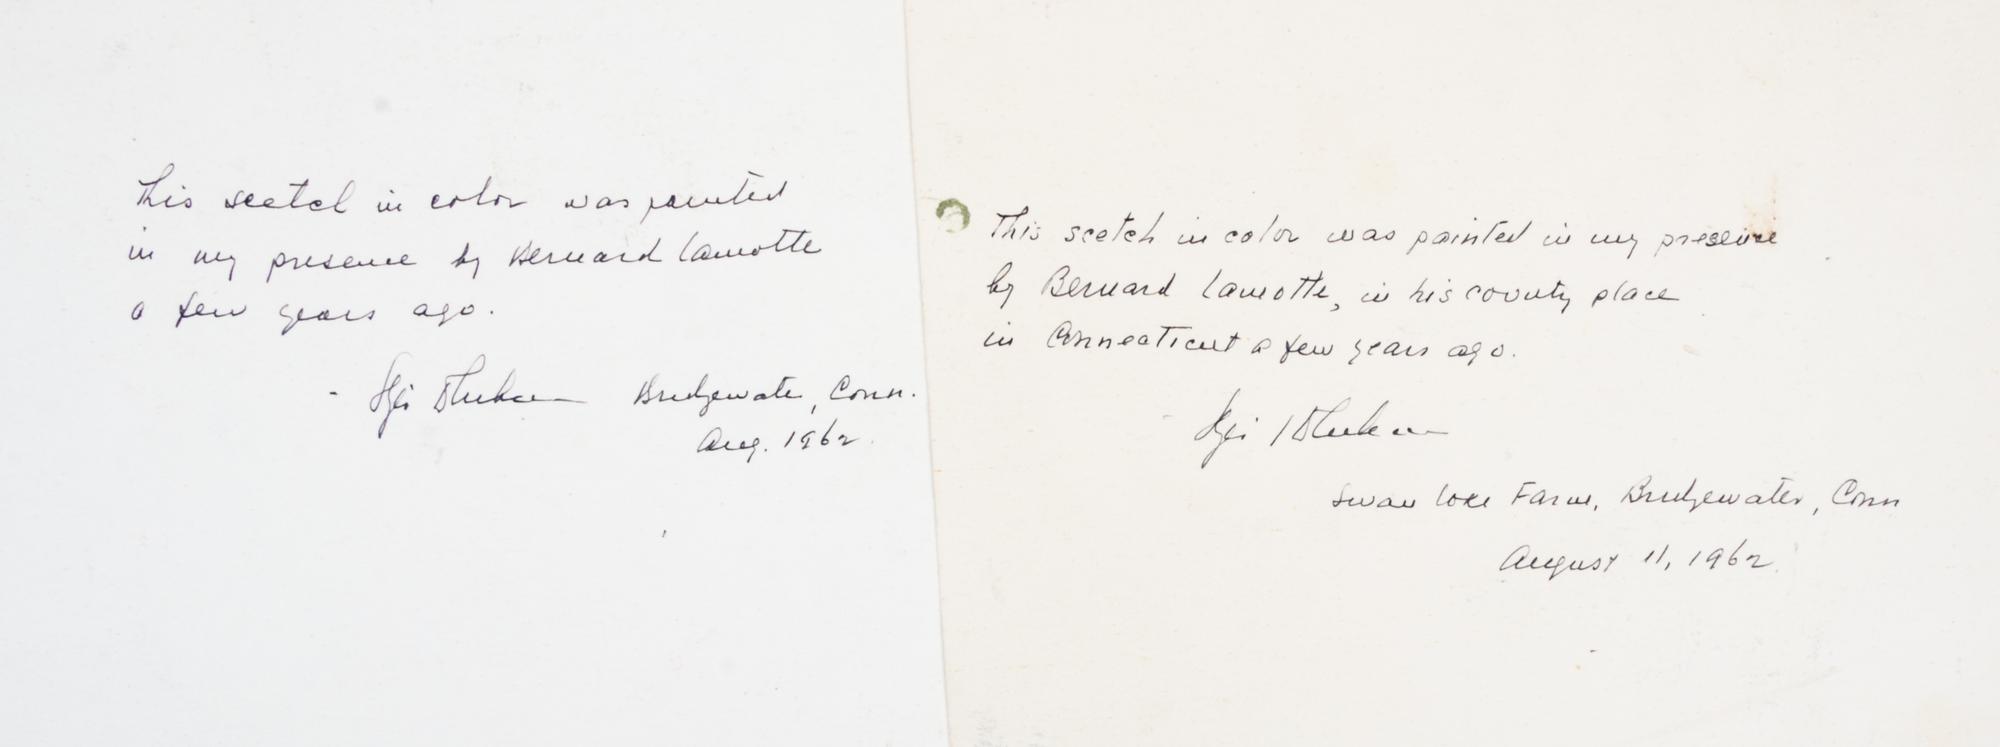 This scetch in color was painted
in my presence by Bernard Lamotte
a few years ago.
Bridgewater, Conn.
Aug. 1962
This scetch in color was painted in my presence
by Bernard Lamotte, in his country place
in Connecticut a few years ago.
Swan Lake Farm, Bridgewater, Conn
August 11, 1962